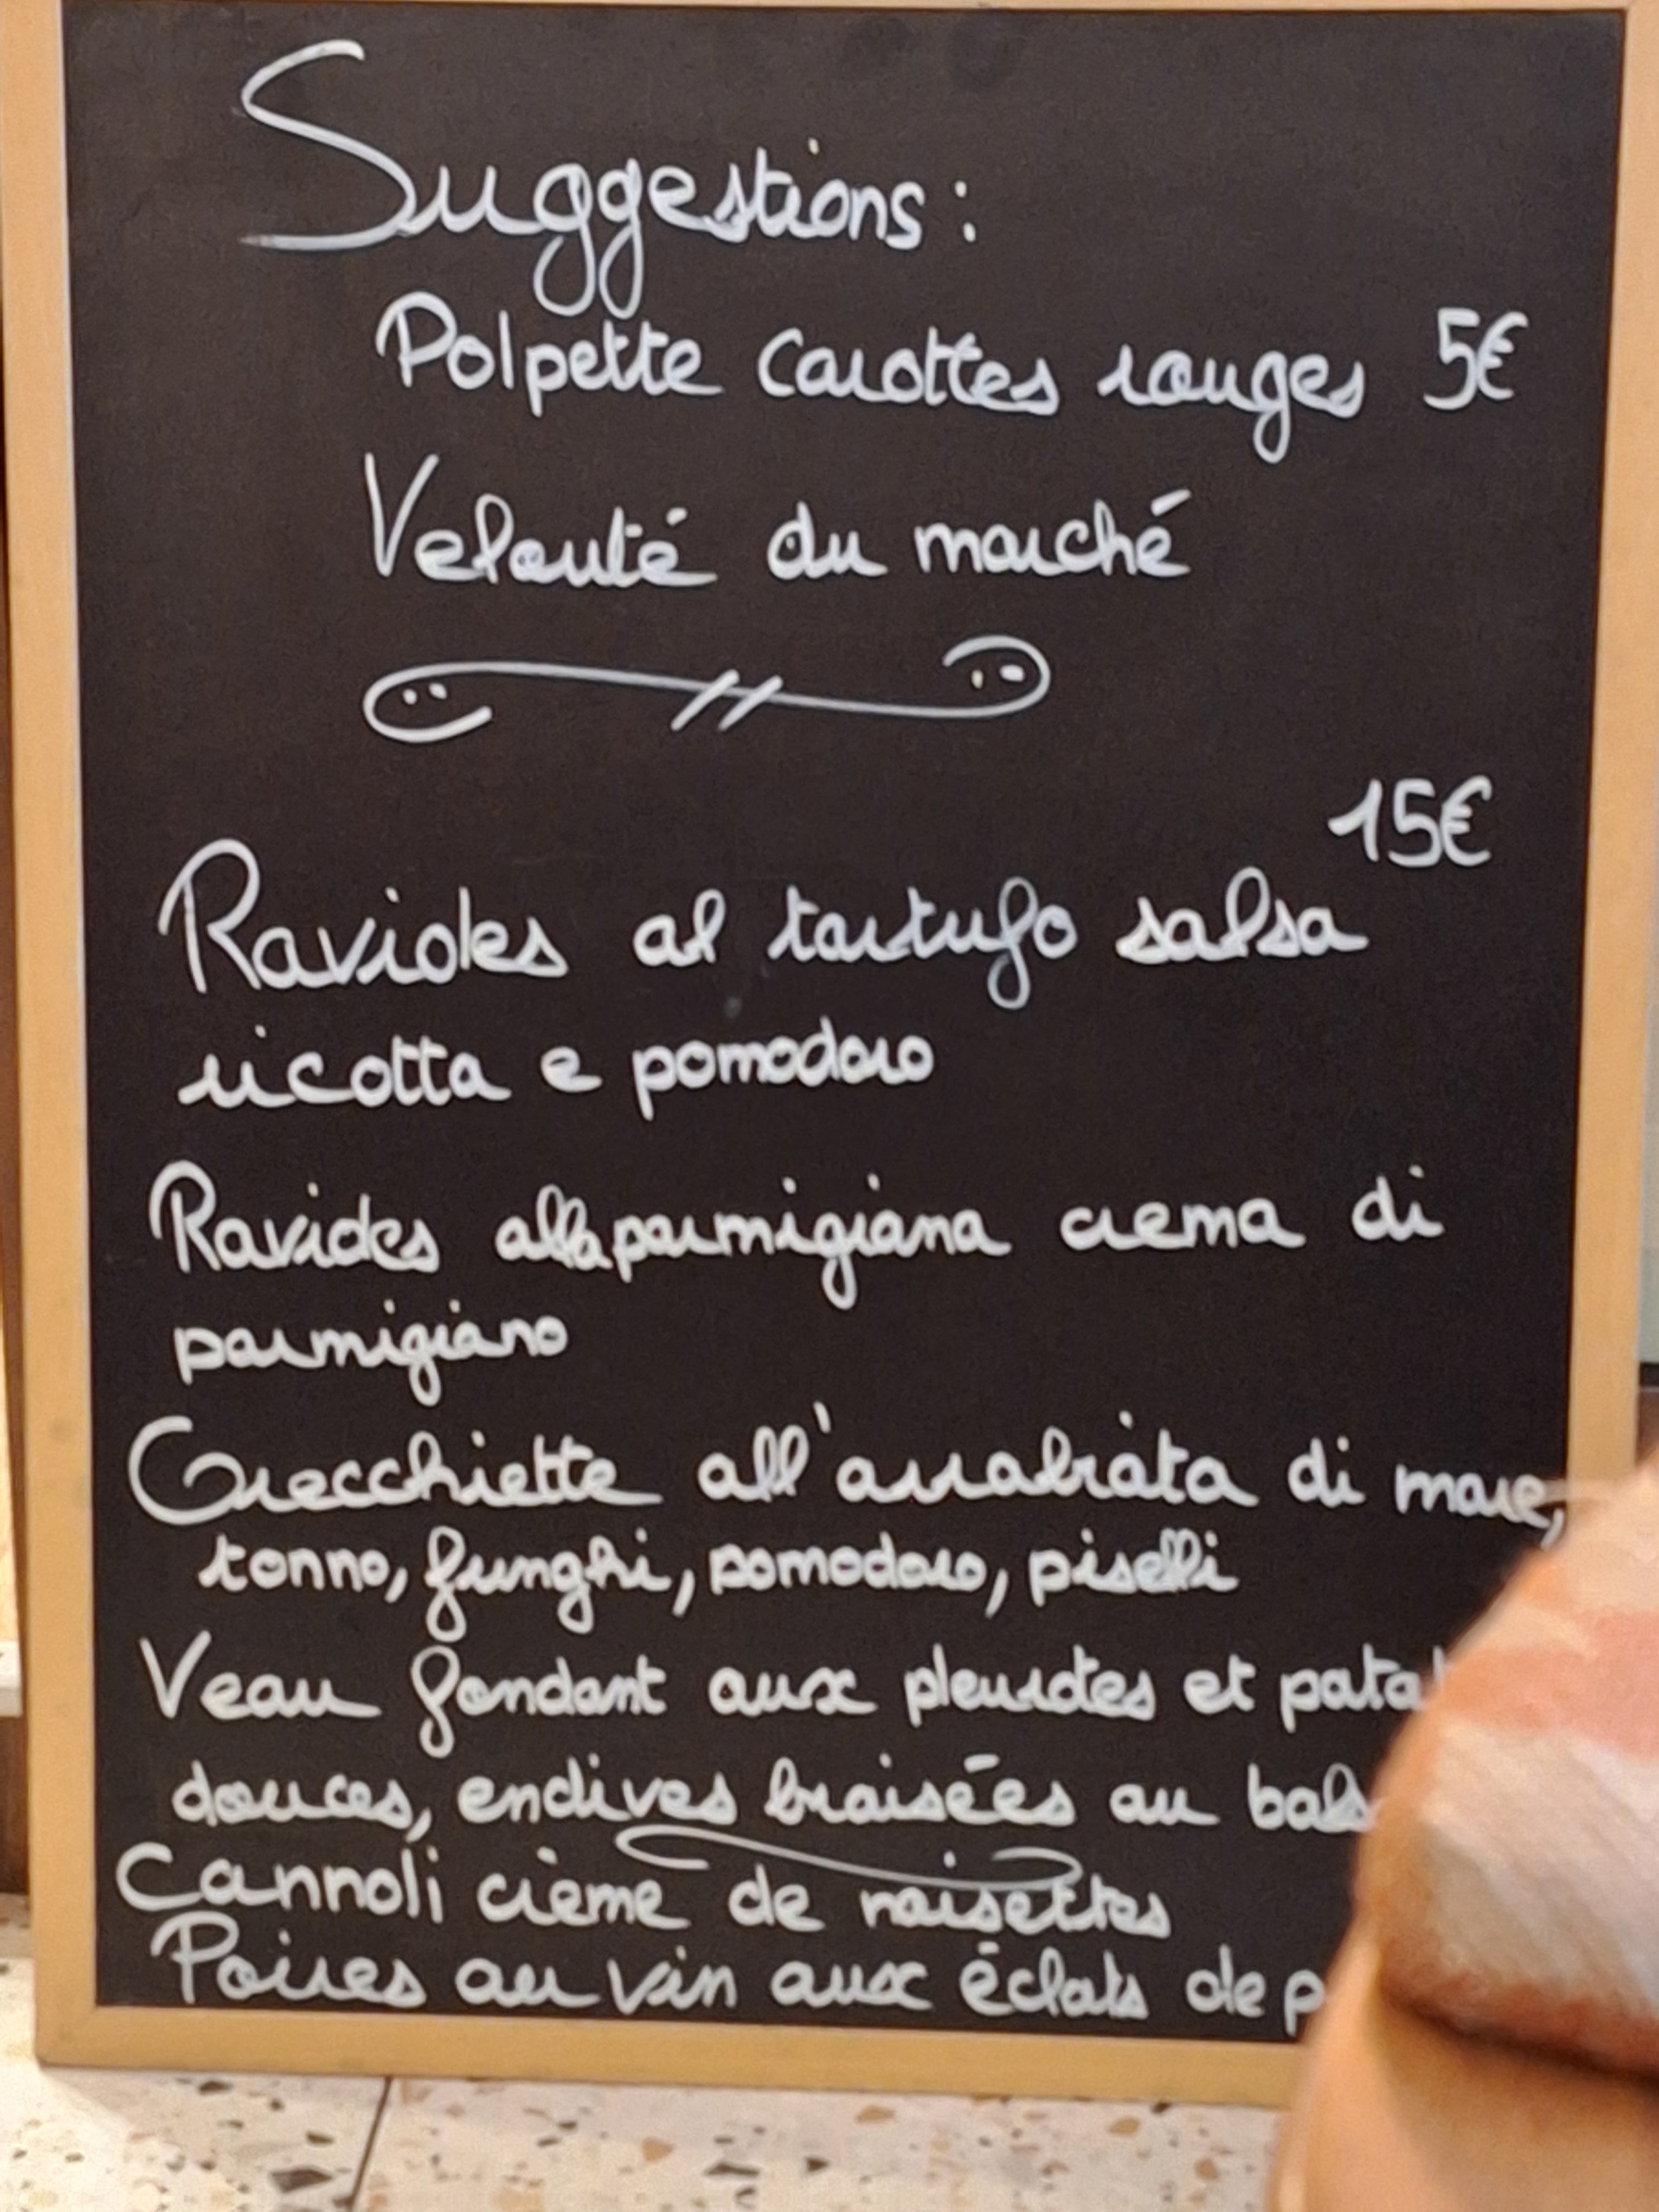 Suggestions :
Polpette carottes rouges 5€
Velouté du marché
15€
Ravioles al tartufo salsa
ricotta e pomodoro
Ravioles alla parmigiana crema di
parmigiano
Orecchiette all'arrabiata di mare,
tonno, funghi, pomodoro, piselli
Veau fondant aux pleurotes et
douces, endives braisées au
Cannoli crème de noisettes
Poires au vin aux éclats de